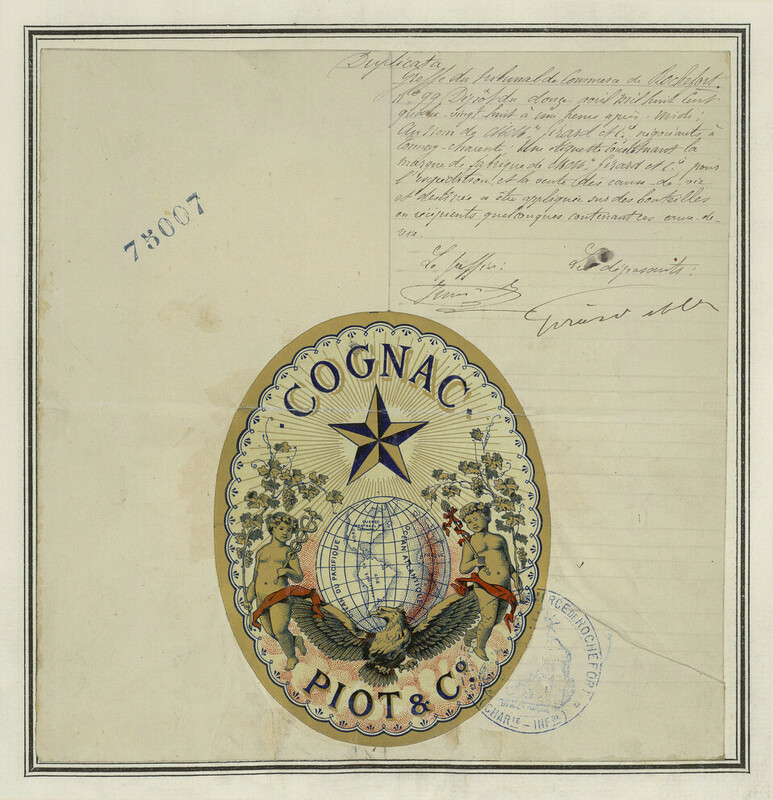 Duplicata
Greffe du tribunal de Commerce de Rochefort.
N.º 99 Dépôt du douze avril mil huit cent
quatre-vingt-huit à une heure après-midi;
de Girard et C.ie, négociants, à
Tonnay-charente: Une étiquette constituant la
marque de fabrique de Girard et C.ie pour
l'expédition et la vente des eaux-de-vie
et destinée à être appliquée sur des bouteilles
ou récipients quelconques contenant ces eaux-de-
vie.
Le greffier: Les déposants:
75007
COGNAC
OCÉAN DU PACIFIQUE
OCÉAN ATLANTIQUE
PIOT & Cº.
CE DE ROCHEFORT
(CHARTE - INFRE)